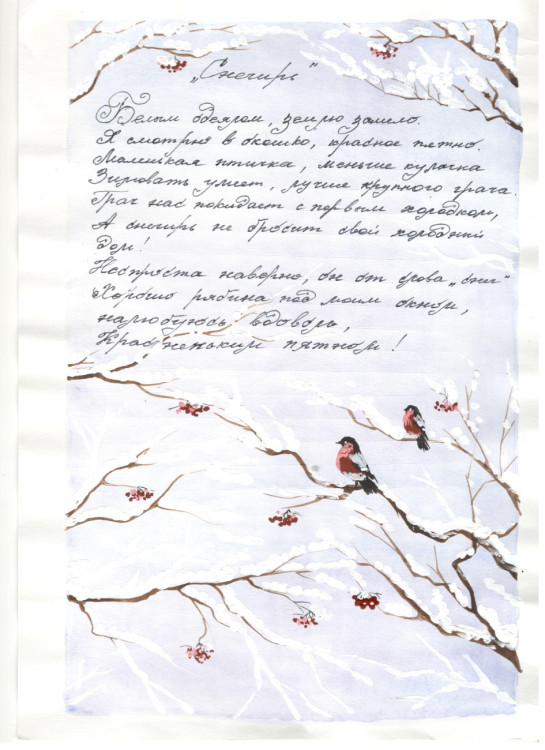 „Снегирь"
Белым одеялом, землю замело.
Я смотрю в окошко, красное пятно.
Маленькая птичка, меньше кулачка
Зимовать умеет, лучше крупного грача.
Грач нас покидает с первым холодком,
А снегирь не бросит свой холодный
дом!
Неспроста наверно, он от слова „снег"
Хорошо рябина под моим окном,
налюбуюсь вдоволь,
Красненьким пятном!